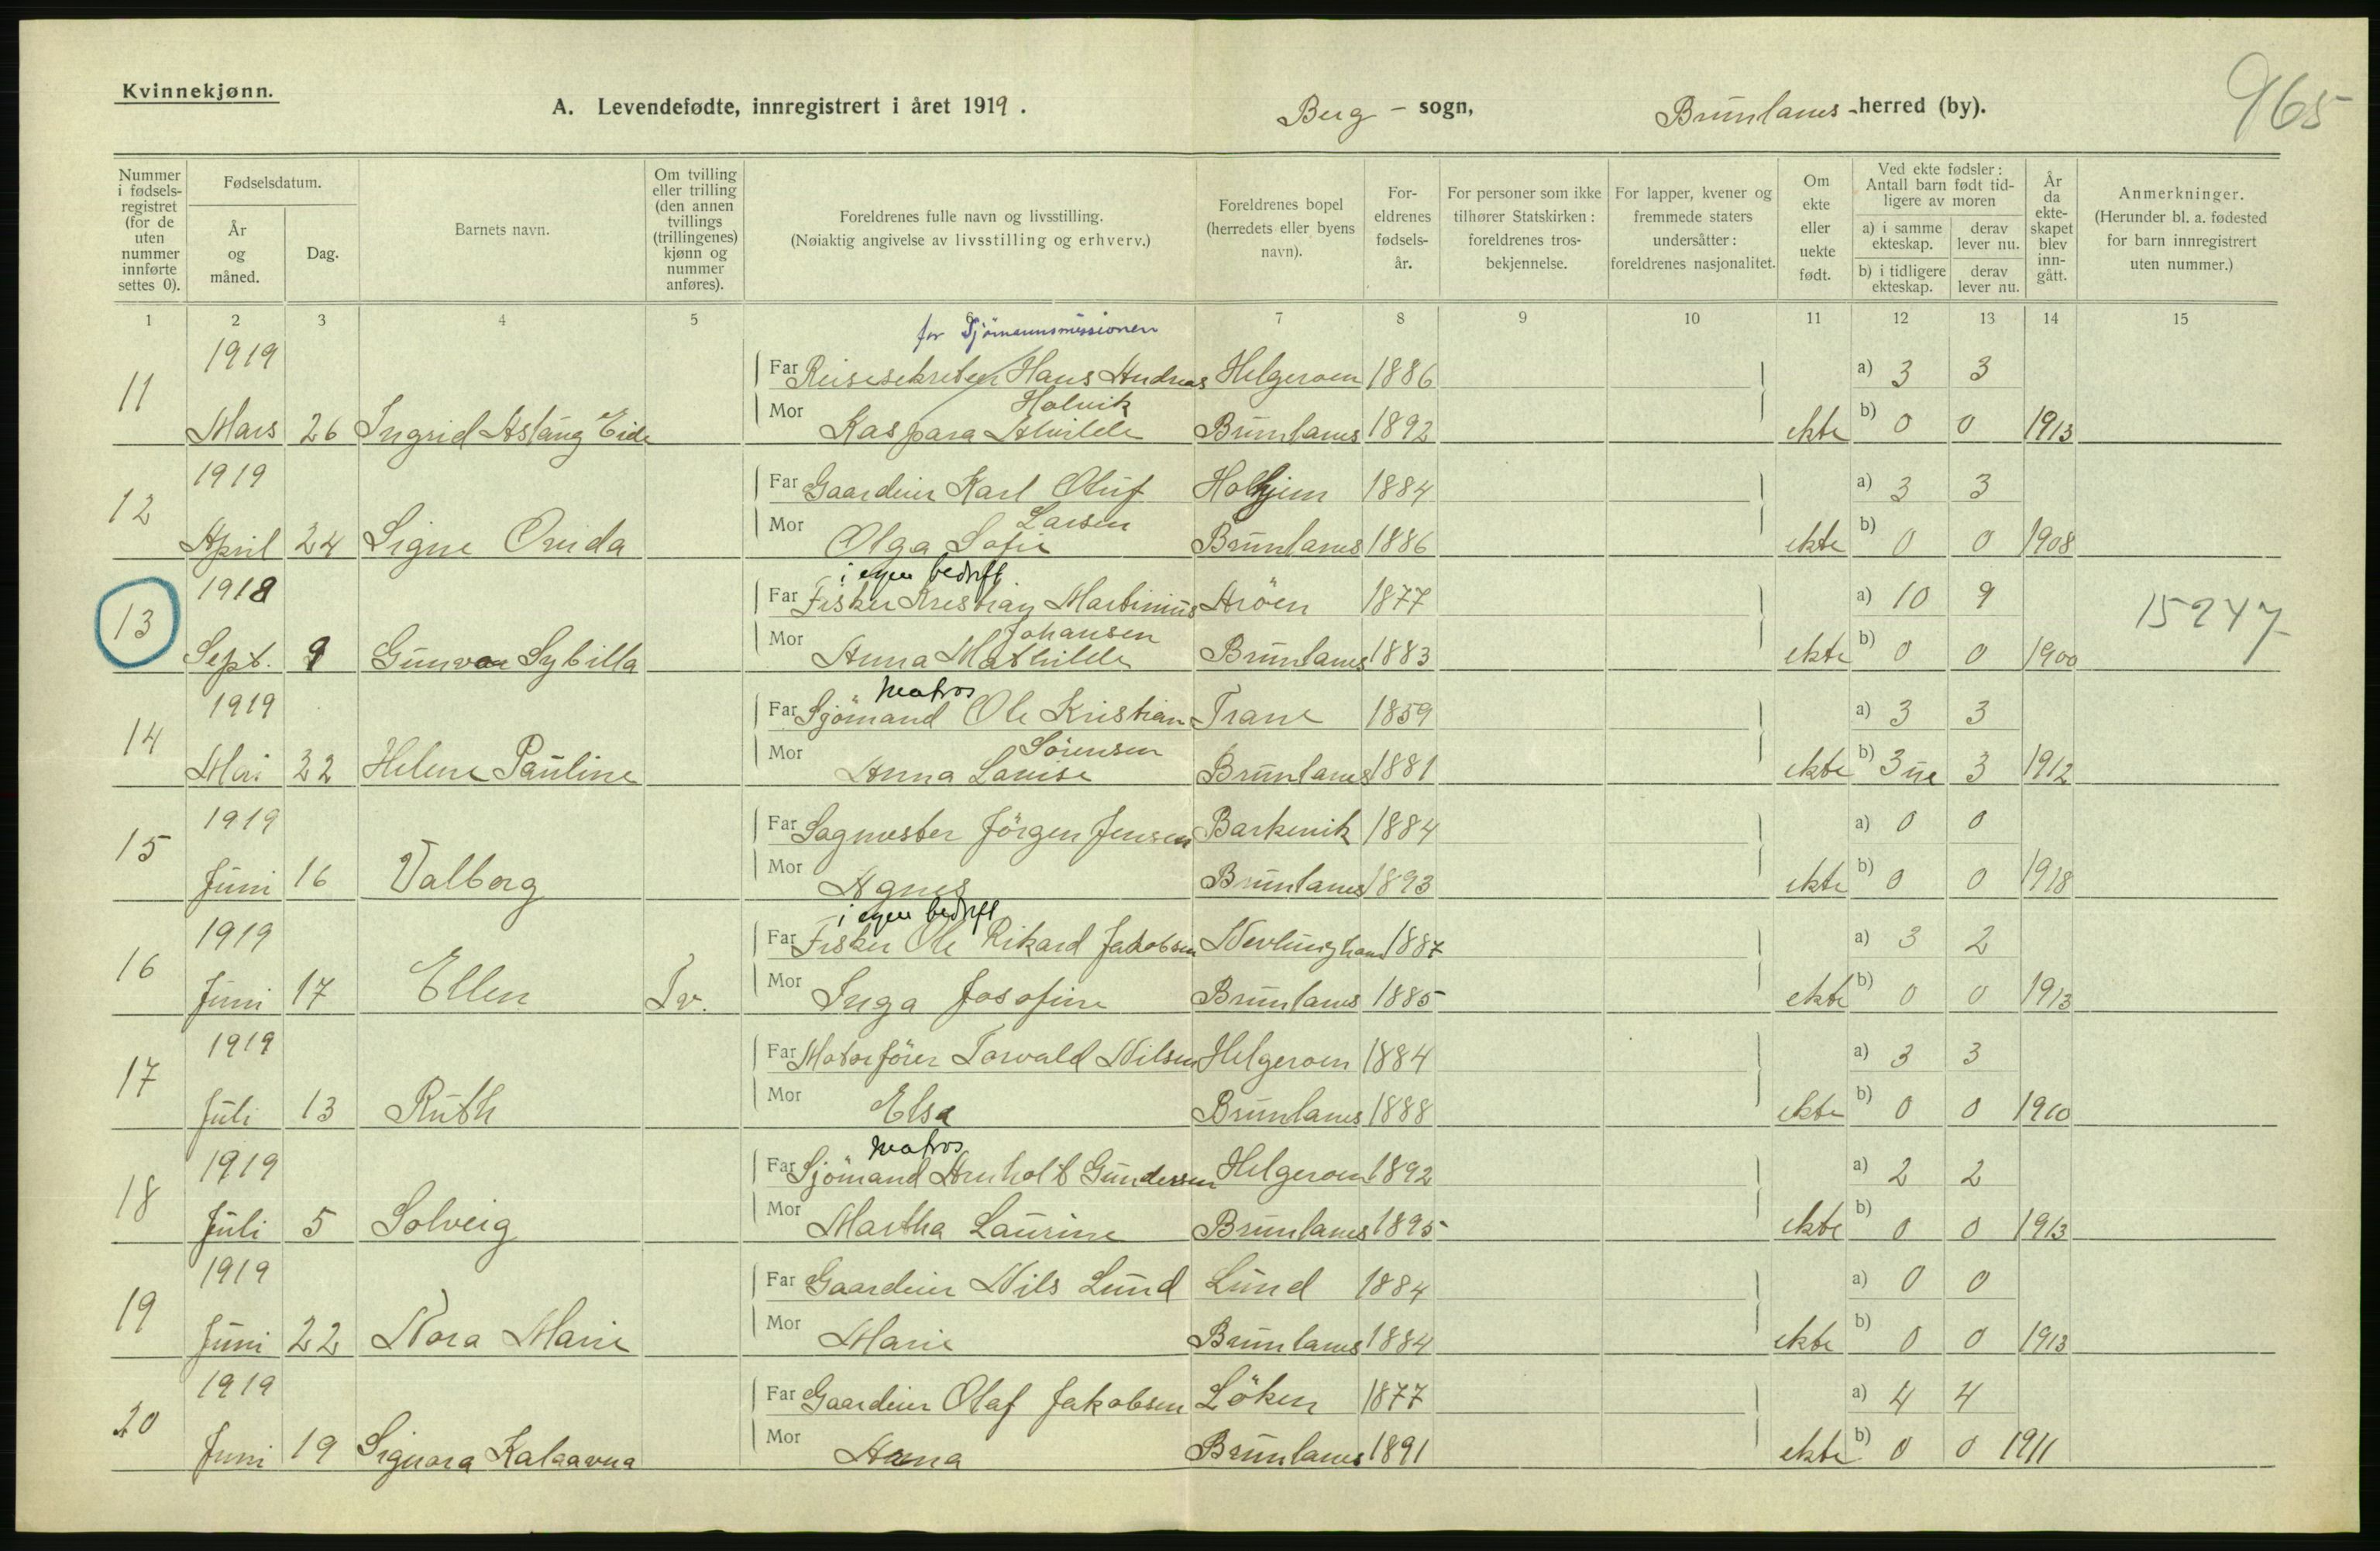 Kvinnekjønn.
965
A. Levendefødte, innregistrert i året 1919. Berg - sogn, Brunlanes -herred (by).
Nummer i fødsels-registret (for de uten nummer innførte settes 0).
Fødselsdatum.
År og måned.
Dag.
Barnets navn.
Om tvilling eller trilling (den annen tvillings (trillingenes) kjønn og nummer anføres).
Foreldrenes fulle navn og livsstilling.
(Nøiaktig angivelse av livsstilling og erhverv.)
Foreldrenes bopel (herredets eller byens navn).
For-eldrenes fødsels-år.
For personer som ikke tilhører Statskirken: foreldrenes tros-bekjennelse.
For lapper, kvener og fremmede staters undersåtter: foreldrenes nasjonalitet.
Om ekte eller uekte født.
Ved ekte fødsler: Antall barn født tid-ligere av moren
a) i samme ekteskap. derav lever nu.
b) i tidligere ekteskap. derav lever nu.
År da ekte-skapet blev inn-gått.
Anmerkninger.
(Herunder bl. a. fødested for barn innregistrert uten nummer.)
1 2 3 4 5 6 7 8 9 10 11 12 13 14 15
for Sjömannsmissionen
11 1919 Far Reisesekretær Hans Andreas Helgeroen 1886 a) 3 3
Holvik
Mars 26 Ingrid Aslaug Eide Mor Kaspara Alvilde Brunlanes 1892 ekte b) 0 0 1913
12 1919 Far Gaardeier Karl Oluf Holhjem 1884 a) 3 3
Larsen
April 24 Signe Ovida Mor Olga Sofie Brunlanes 1886 ekte b) 0 0 1908
i egen bedrift
13 1918 Far Fisker Kristian Martinius Aröen 1877 a) 10 9 15247
Johansen
Sept. 9 Gunvor Sybilla Mor Anna Mathilde Brunlanes 1883 ekte b) 0 0 1900
Matros
14 1919 Far Sjömand Ole Kristian Trane 1859 a) 3 3
Sörensen
Mai 22 Helene Pauline Mor Anna Louise Brunlanes 1881 ekte b) 3 ue 3 1912
15 1919 Far Sagmester Jörgen Jensen Barkevik 1884 a) 0 0
Juni 16 Valborg Mor Agnes Brunlanes 1893 ekte b) 0 0 1918
i egen bedrift
16 1919 Far Fisker Ole Rikard Jakobsen Nevlunghavn 1887 a) 3 2
Juni 17 Ellen Tv. Mor Inga Josefine Brunlanes 1885 ekte b) 0 0 1913
17 1919 Far Motorförer Torvald Nilsen Helgeroen 1884 a) 3 3
Juli 13 Ruth Mor Elsa Brunlanes 1888 ekte b) 0 0 1910
Matros
18 1919 Far Sjömand Arnholt Gundersen Helgeroen 1892 a) 2 2
Juli 5 Solveig Mor Martha Laurine Brunlanes 1895 ekte b) 0 0 1913
19 1919 Far Gaardeier Nils Lund Lund 1884 a) 0 0
Juni 22 Nora Marie Mor Marie Brunlanes 1884 ekte b) 0 0 1913
20 1919 Far Gaardeier Olaf Jakobsen Löken 1877 a) 4 4
Juni 19 Signora Mor Anna Brunlanes 1891 ekte b) 0 0 1911